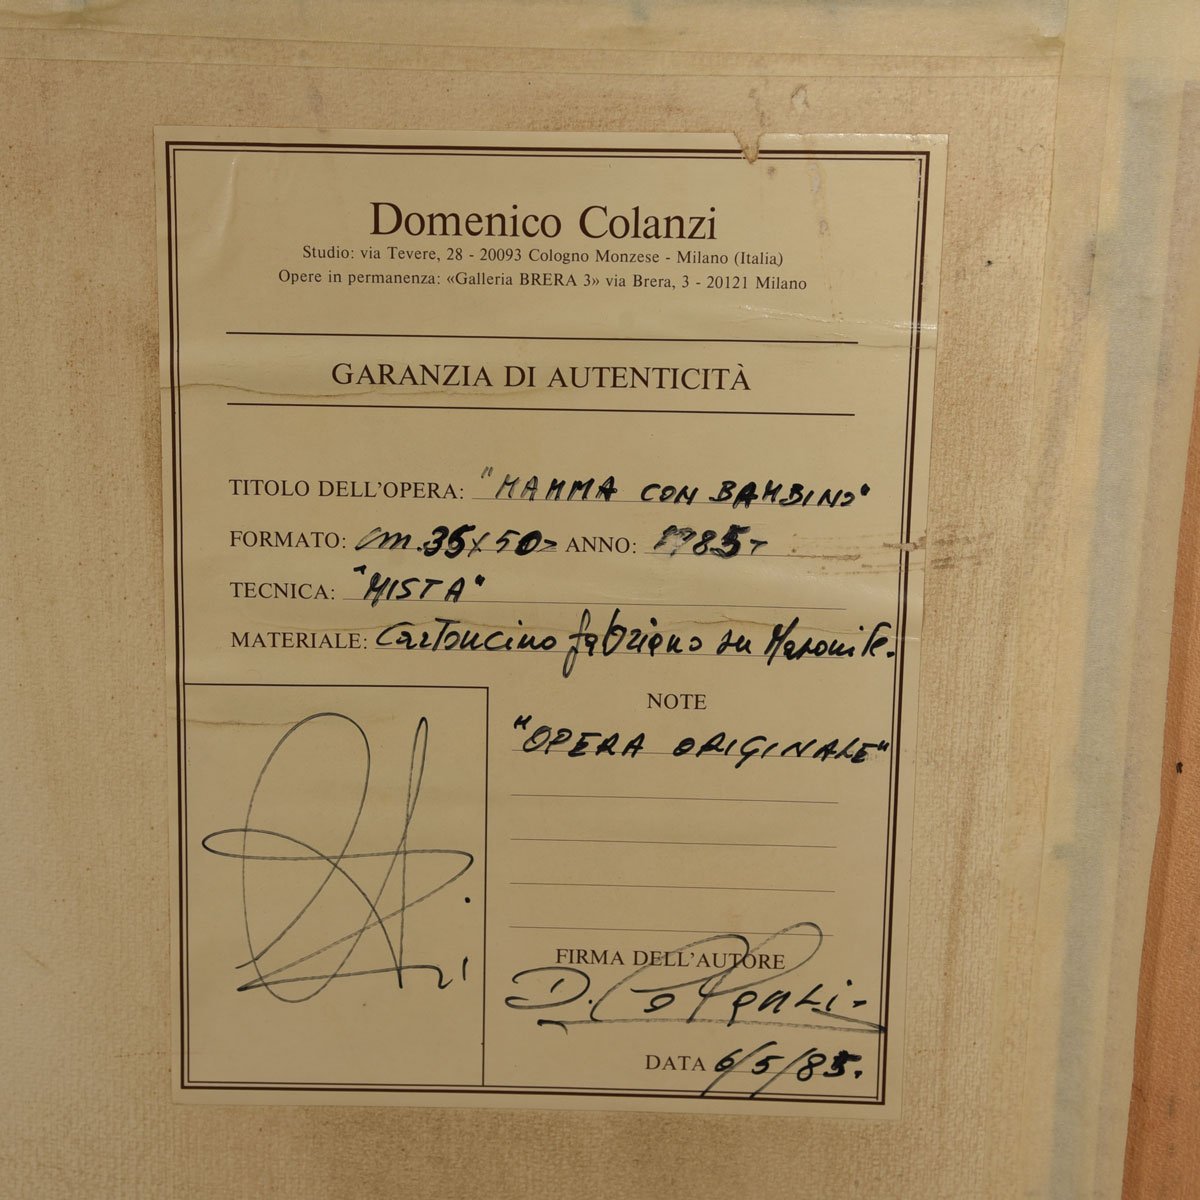 Domenico Colanzi
Studio: via Tevere, 28 - 20093 Cologno Monzese - Milano (Italia)
Opere in permanenza: «Galleria BRERA 3» via Brera, 3 - 20121 Milano
GARANZIA DI AUTENTICITÀ
TITOLO DELL'OPERA: "MAMMA CON BAMBINO"
FORMATO: cm. 35x50- ANNO: 1985-
TECNICA: "MISTA"
MATERIALE: Cartoncino fabriano su Masonite.
NOTE
"OPERA ORIGINALE"
FIRMA DELL'AUTORE
D. Colanzi-
DATA 6/5/85.